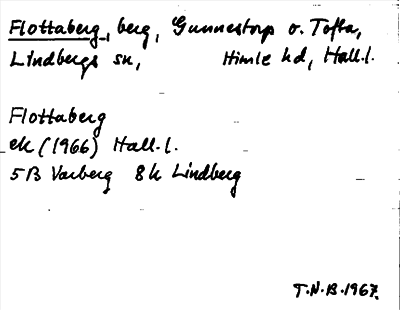 Flottaberg, berg, Gunnestorp o. Tofta,
Lindbergs sn, Himle hd, Hall.l.
Flottaberg
ek (1966) Hall.l.
5B Varberg 8k Lindberg
T.N.B. 1967.